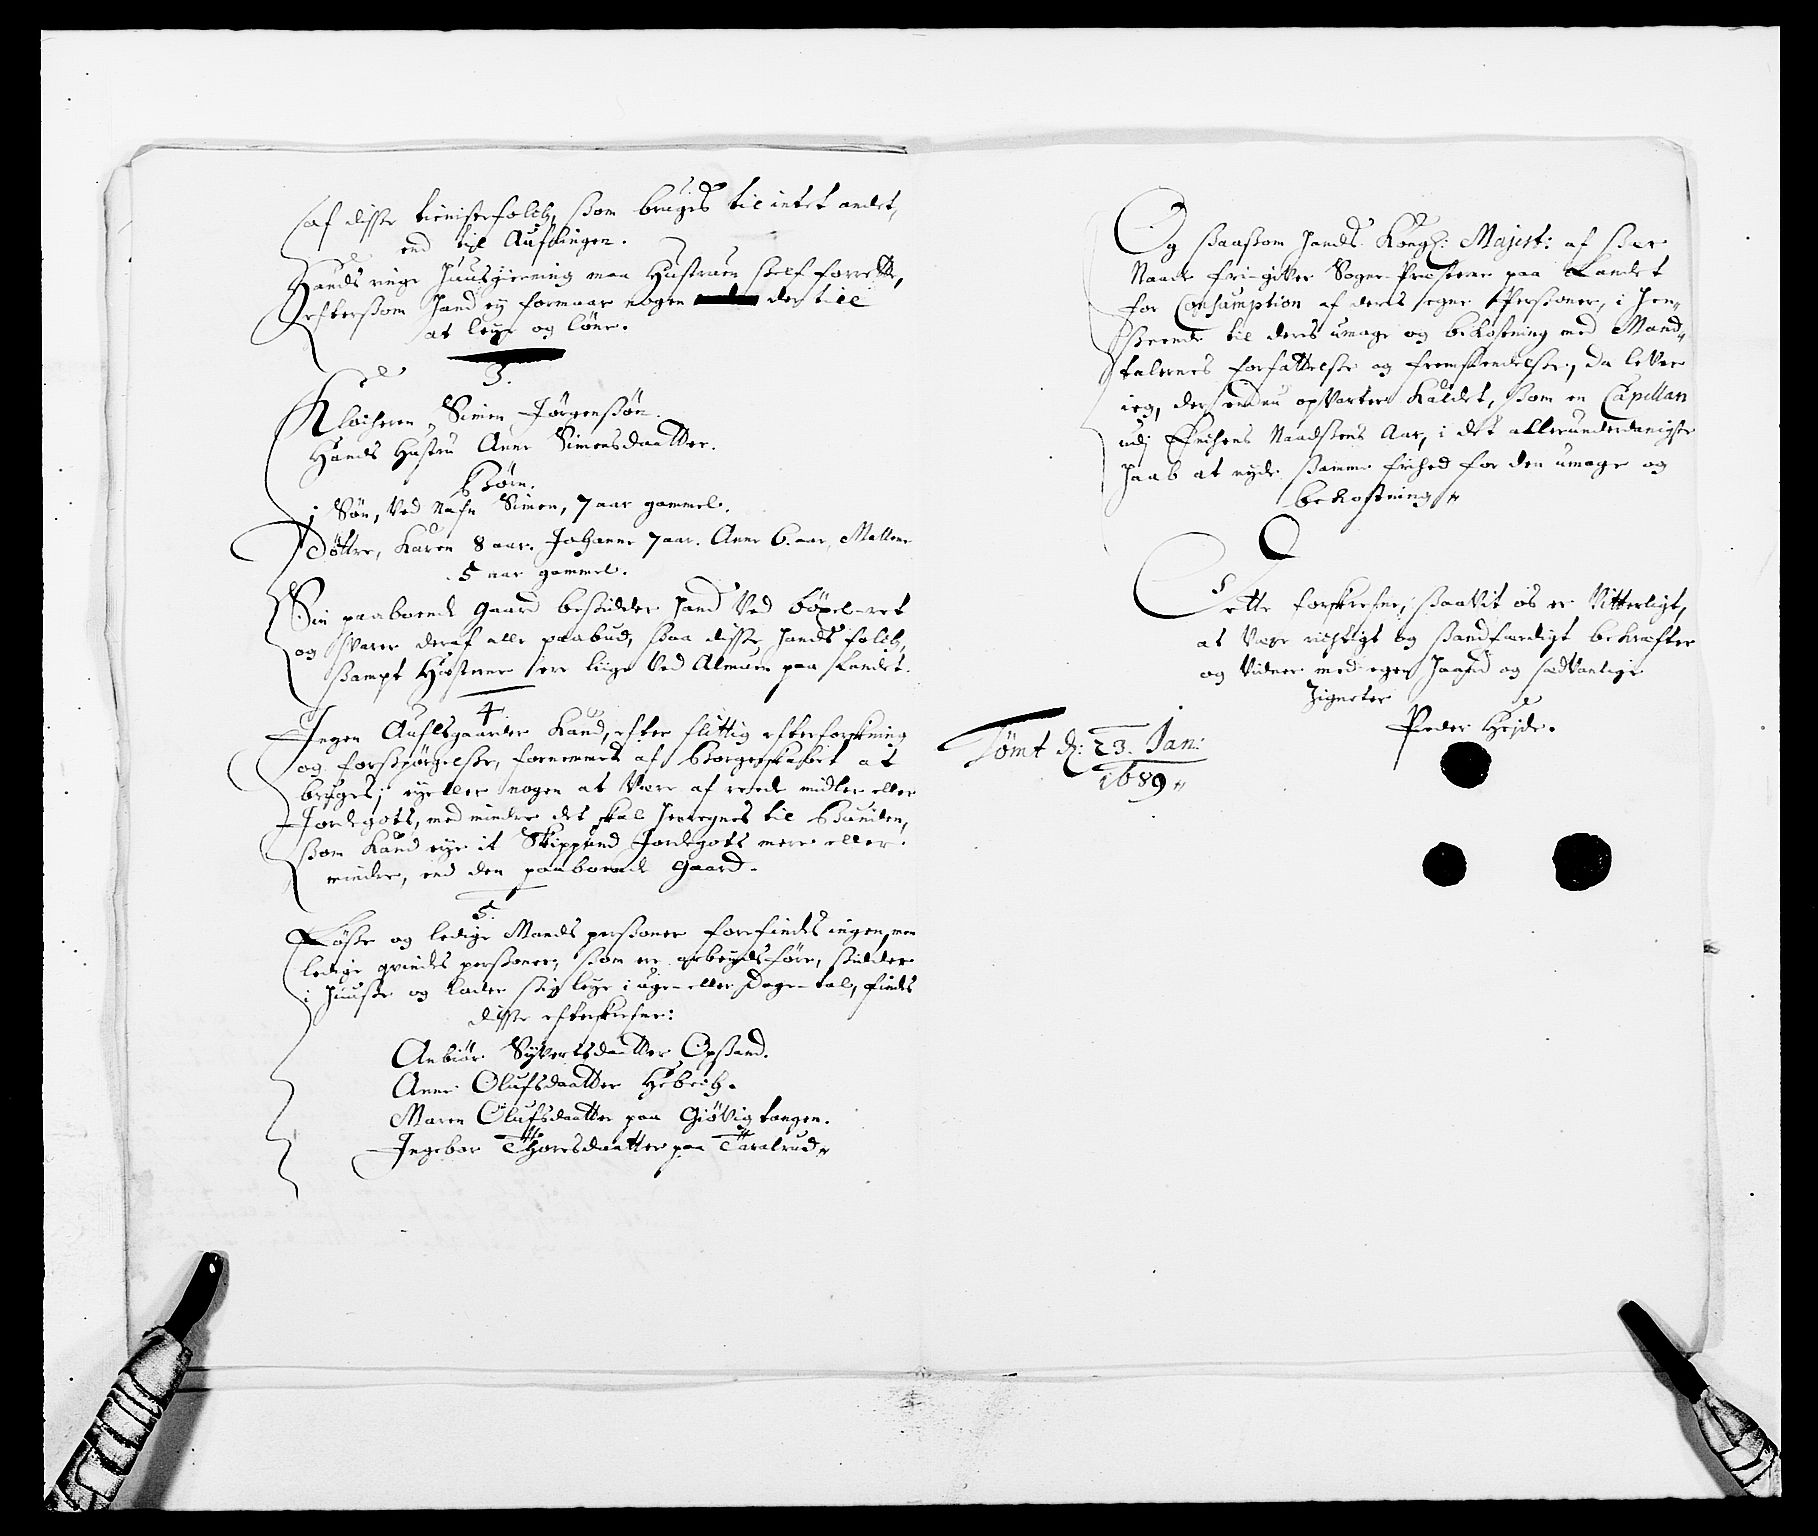 af disse tienistefolch, som brugis til intet andet,
end til Auflingen.
Hands ringe Huusgierning maa Hustruen self forrette,
eftersom hand ej formaar nogen der till
at leye og lône.
3.
Klocheren, Simen Jörgensön.
Hands Hustru Anne Simensdaatter.
Börn.
j Sön, ved Nafn Simon, 7 aar gammel.
Döttre, Karen 8 aar. Johanne 7 aar. Anne 6. aar, Mallene
5 aar gammel.
Sin paaboende gaard besidder hand ved böxel-ret
og svarer deraf alle paabud, saa disse hands folch,
sampt Hustrue ere liige ved Almuen paa Landet.
4.
Ingen Aufls gaarder kand, efter flittig efterforskning
og forspörgelse, fornemmes af Borgerskabet at
bruges; eyheller nogen at være af reede midler eller
Jordegots, med mindre det skal henregnes til Bunden,
som kand eye it Skippund Jordegots mere eller
minder, end den paaboende gaard.
5.
Löse og ledige Mands personer forefindes ingen, men
ledige qvindes personer, som er arbeyds före, sidder
i huuse og lader sig leye i uge- eller Dage-tal, findes
disse efterskrefne:
Anbiör Syvertsdaatter Opsand.
Anne Olufsdaatter Hebech.
Maren Olufsdaatter paa Giövig tangen.
Ingebor Thoresdaatter paa Taralrud
Og saasom hands Kongl: Majest: af stor
Naade fri-giver Sogne-Præsterne paa Landet
for Consumption af deres egne Personer, i hen-
seende til deres umage og bekostning med Mand-
talernes forfattelse og fremsendelse, da lever
ieg, der endnu opvarter kaldet, som en Capellan
udj Enchens Naadsens Aar, i det allerunderdanigste
haab at nyde samme frihed for den umage og
bekostning
Dette forskrefne, saavit os er vitterligt,
at være richtigt og sandfærdigt bekræfter
og vidner med egen haand og sædvanlige
Zigneter
Peder Hejde.
Tömt d: 23. Jan:
1689